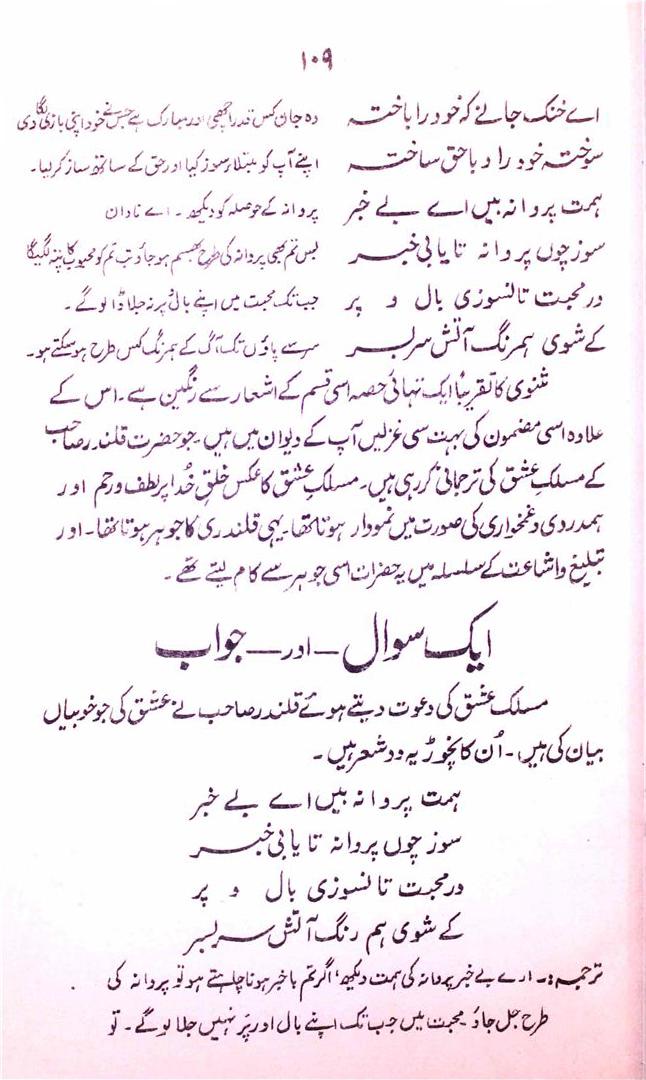 ۱۰۹
اے خنک جانے کہ خود را باختہ وہ جان کس قدر اچھی اور مبارک ہے جس نے خود اپنی بازی لگا دی
سوختہ خود را و باحق ساختہ اپنے آپ کو مبتلا رسوز کیا اور حق کے ساتھ ساز کر لیا۔
ہمت پروانہ بیں اے بے خبر پروانہ کے حوصلہ کو دیکھو۔ اے نادان
سوز چوں پروانہ تا یابی خبر بس تم بھی پروانہ کی طرح بھسم ہو جاؤ تب تم کو محبوب کا پتہ لگیگا
در محبت تا نسوزی بال و پر جب تک محبت میں اپنے بال پر نہ جلا ڈالوگے۔
کے شوی ہمرنگ آتش سربسر سر سے پاؤں تک آگ کے ہمرنگ کس طرح ہو سکتے ہو۔
مثنوی کا تقریباً ایک تہائی حصہ اسی قسم کے اشعار سے رنگین ہے۔ اس کے
علاوہ اسی مضمون کی بہت سی غزلیں آپ کے دیوان میں ہیں۔ جو حضرت قلندر صاحب
کے مسلک عشق کی ترجمانی کر رہی ہیں۔ مسلک عشق کا عکس خلق خُدا پر لطف و رحم اور
ہمدردی و غمخواری کی صورت میں نمودار ہوتا تھا۔ یہی قلندری کا جوہر ہوتا تھا۔ اور
تبلیغ و اشاعت کے سلسلہ میں یہ حضرات اسی جوہر سے کام لیتے تھے۔
ایک سوال — اور — جواب
مسلک عشق کی دعوت دیتے ہوئے قلندر صاحب نے عشق کی جو خوبیاں
بیان کی ہیں۔ اُن کا نچوڑ یہ دو شعر ہیں۔
ہمت پروانہ بیں اے بے خبر
سوز چوں پروانہ تا یابی خبر
در محبت تا نسوزی بال و پر
کے شوی ہم رنگ آتش سربسر
ترجمہ:۔ ارے بے خبر پروانہ کی ہمت دیکھ، اگر تم باخبر ہونا چاہتے ہو تو پروانہ کی
طرح جل جاؤ۔ محبت میں جب تک اپنے بال اور پَر نہیں جلاؤ گے۔ تو